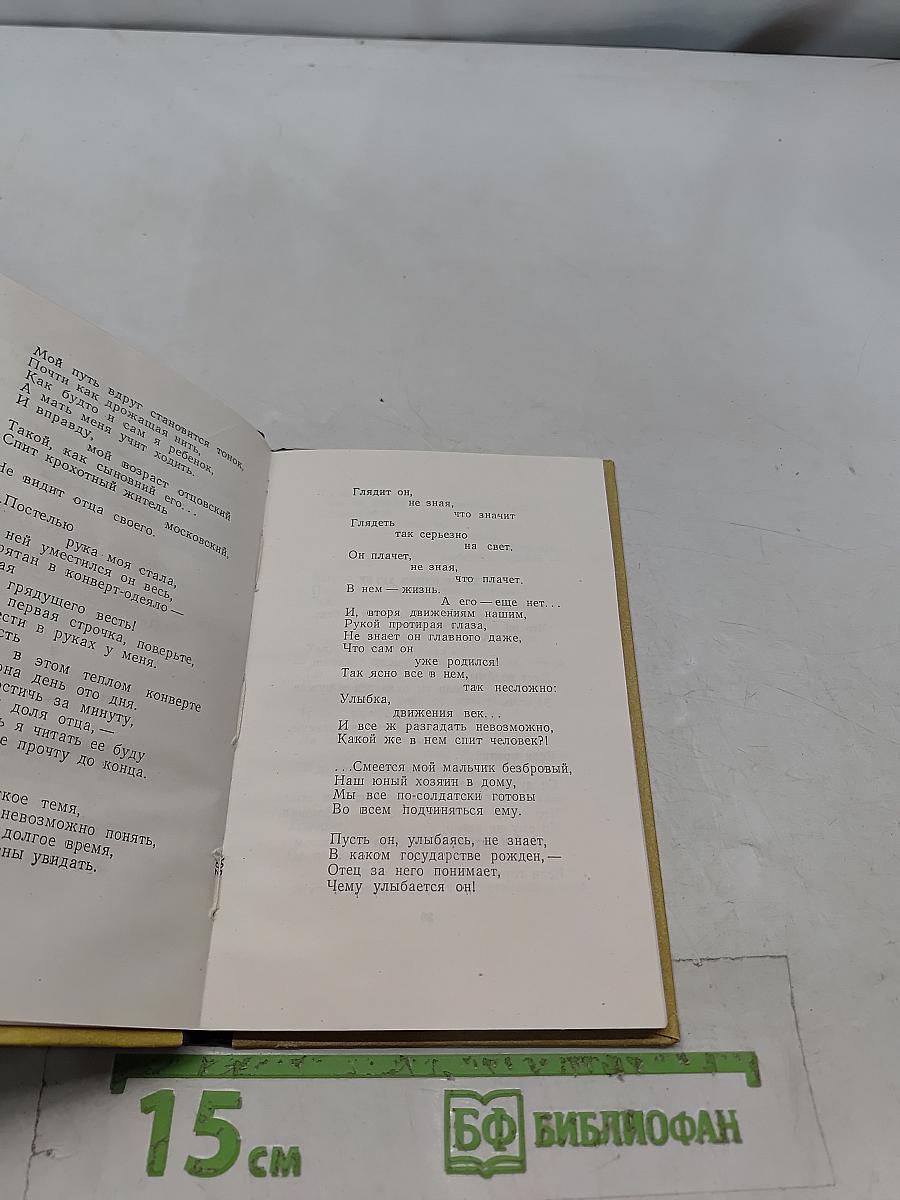 Мой путь вдруг становится тонок,
Почти как дрожащая нить,
Как будто и сам я ребенок,
А мать меня учит ходить.
И вправду,
мой возраст отцовский
Такой, как сыновний его...
Спит крохотный житель московский,
Не видит отца своего.
...Постелью
рука моя стала,
ней уместился он весь,
в конверт-одеяло —
грядущего весть!
первая строчка, поверьте,
в руках у меня.
в этом теплом конверте
день ото дня.
за минуту,
доля отца, —
я читать ее буду
прочту до конца.
темя,
невозможно понять,
долгое время,
увидать.
Глядит он,
не зная,
что значит
Глядеть
так серьезно
на свет.
Он плачет,
не зная,
что плачет.
В нем — жизнь.
А его — еще нет...
И, вторя движениям нашим,
Рукой протирая глаза,
Не знает он главного даже,
Что сам он
уже родился!
Так ясно все в нем,
так несложно:
Улыбка,
движения век...
И все ж разгадать невозможно,
Какой же в нем спит человек?!
...Смеется мой мальчик безбровый,
Наш юный хозяин в дому,
Мы все по-солдатски готовы
Во всем подчиняться ему.
Пусть он, улыбаясь, не знает,
В каком государстве рожден, —
Отец за него понимает,
Чему улыбается он!
15 см
БФ БИБЛИОФАН